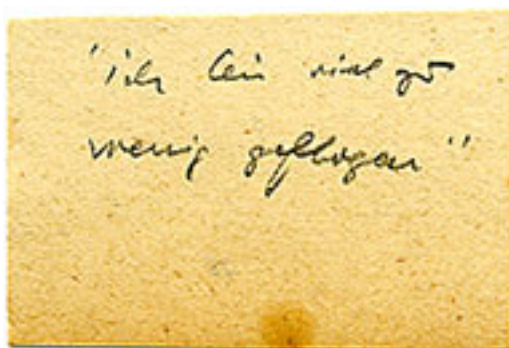 "ich bin viel zu
wenig geflogen"